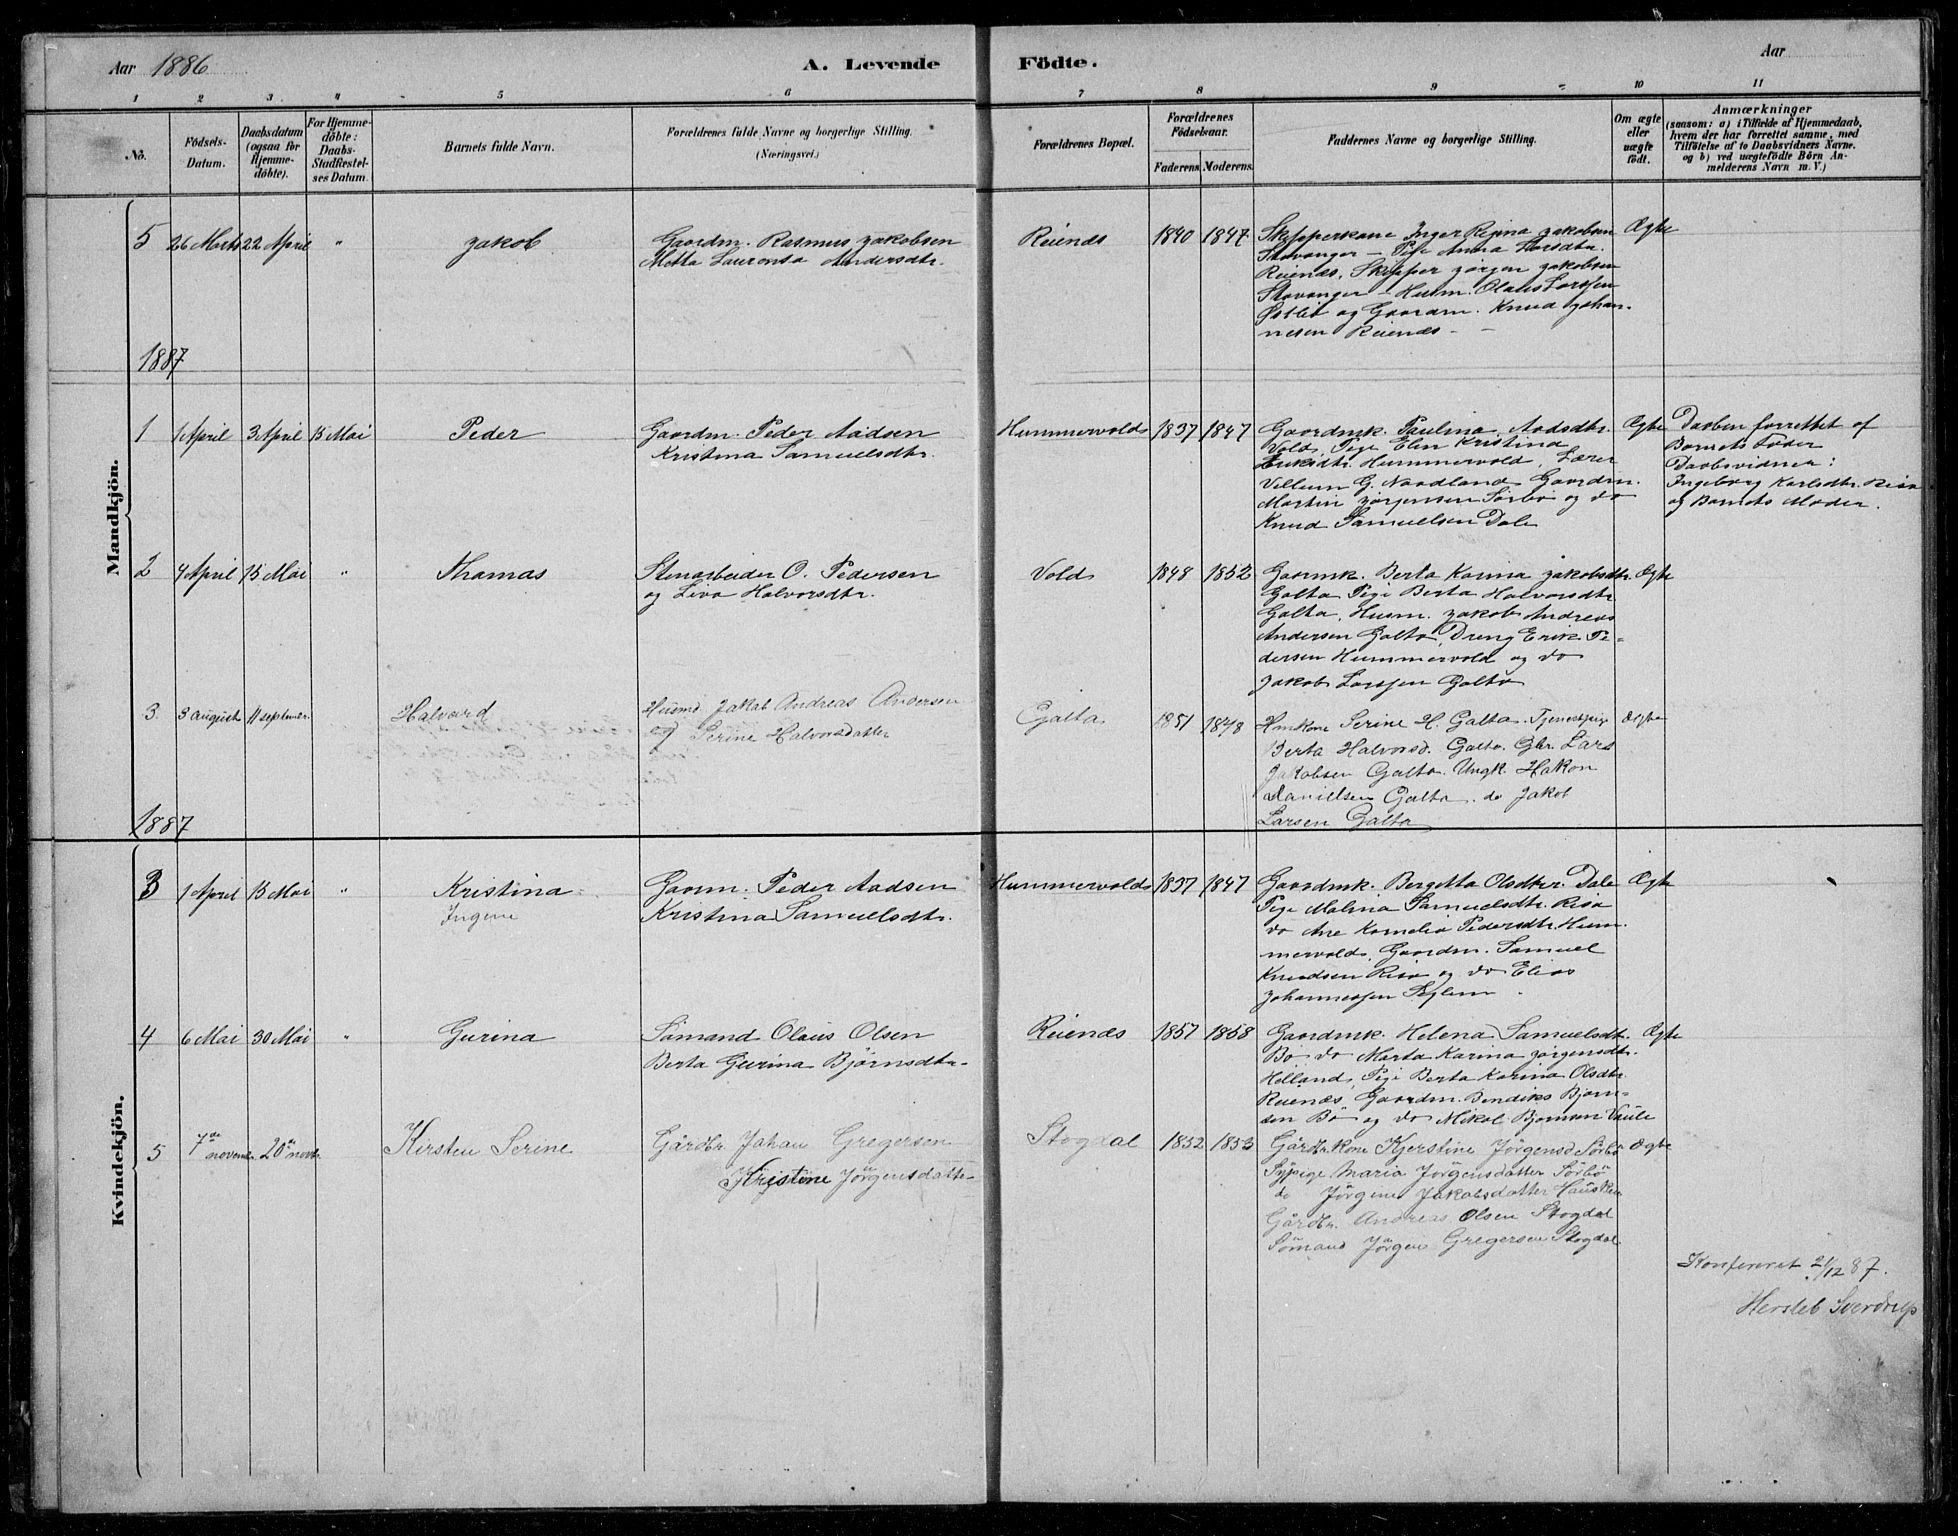 Aar 1886
A. Levende Födte.
Aar
1 2 3 4 5 6 7 8 9 10 11
No.
Födsels-
Datum.
Daabsdatum
(ogsaa for
Hjemme-
döbte).
For Hjemme-
döbte:
Daabs-
Stadfæstel-
ses Datum.
Barnets fulde Navn.
Forældrenes fulde Navne og borgerlige Stilling.
(Næringsvei.)
Forældrenes Bopæl.
Forældrenes
Födselsaar.
Faderens. Moderens.
Faddernes Navne og borgerlige Stilling.
Om ægte
eller
uægte
födt.
Anmærkninger
(saasom: a) i Tilfælde af Hjemmedaab,
hvem der har forrettet samme, med
Tilföielse af to Daabsvidners Navne.
og b) ved uægtefödte Börn An-
melderens Navn m. V.)
Mandkjön.
5 26 Marts 22 April " Jakob
Gaardm. Rasmus Jakobsen
Metta Laurentsa Andersdtr.
Reienæs 1840 1847
Skipperkone Inger Regina Jakobsen
Stavanger - Pige Anna Larsdtr.
Reienæs, Skipper Jörgen Jakobsen
Stavanger - Husm. Olaus Larssen
Östbö og Gaardm. Knud Johan-
nesen Reienæs -
Ægte
1887
1 1 April 3 April 15 Mai Peder
Gaardm. Peder Aadsen
Kristina Samuelsdtr.
Hummervold 1837 1847
Gaardmk. Paulina Aadsdtr.
Vold, Pige Elen Kristina
Eriksdtr. Hummervold, Lærer
Villum G. Nordland Gaardm.
Martin Jörgensen Sörbö og do
Knud Samuelsen Dale
Ægte
Daaben forrettet af
Barnets Fader
Daabsvidner:
Ingeborg Karlsdtr. Risa
og Barnets Moder.
2 4 April 15 Mai " Thomas
Stenarbeider O. Pedersen
og Liva Halvorsdtr.
Vold 1848 1852
Gaarmk. Berta Karina Jakobsdtr.
Galta Pige Berta Halvorsdtr
Galta, Husm. Jakob Andreas
Andersen Galta, Dreng Erik Pe-
dersen Hummervold og do
Jakob Larssen Galta
Ægte
3 3 august 11 september. Halvard
Husmd Jakob Andreas Andersen
og Serine Halvorsdatter
Galta 1851 1848
Huskone Serine H. Galta. Tjenestpige
Berta Halvorsd. Galta. Gbr. Lars
Jakobsen Galta. Ungk. Hakon
Danielsen Galta. do Jakob
Larsen Galta
Ægte
1887
Kvindekjön.
3 1 April 15 Mai " Kristina
Ingene
Gaarm. Peder Aadsen
Kristina Samuelsdtr.
Hummervold 1837 1847
Gaardmk. Bergetta Olsdtr. Dale
Pige Malina Samuelsdtr. Risa
do Ane Kornelia Pedersdtr. Hum-
mervold, Gaardm. Samuel
Knudsen Risa og do Elias
Johannessen Seglem
Ægte
4 6 Mai 30 Mai " Gurina
Sömand Olaus Olsen
Berta Gurina Björnsdtr.
Reienæs 1857 1858
Gaardmk. Helena Samuelsdtr.
Bö do Marta Karina Jörgensdtr.
Helland, Pige Berta Karina Olsdtr
Reienæs Gaardm. Bendiks Björn-
sen Bö og do Mikal Björnsen Vaule
Ægte
5 7de novembr. 20de novbr. Kirsten Serine
Gårdbr. Johan Gregersen
Kristine Jörgensdatter
Stogdal 1852 1853
Gårdbrkone Kjerstine Jörgensd Sörbö
Sypige Maria Jörgensdatter Sörbö
do Jörgine Jakobsdatter Hausken
Gårdbr. Andreas Olsen Stogdal
Sömand Jörgen Gregersen Stogdal
Ægte
Konfereret 21/12 87.
Hersleb Sverdrup